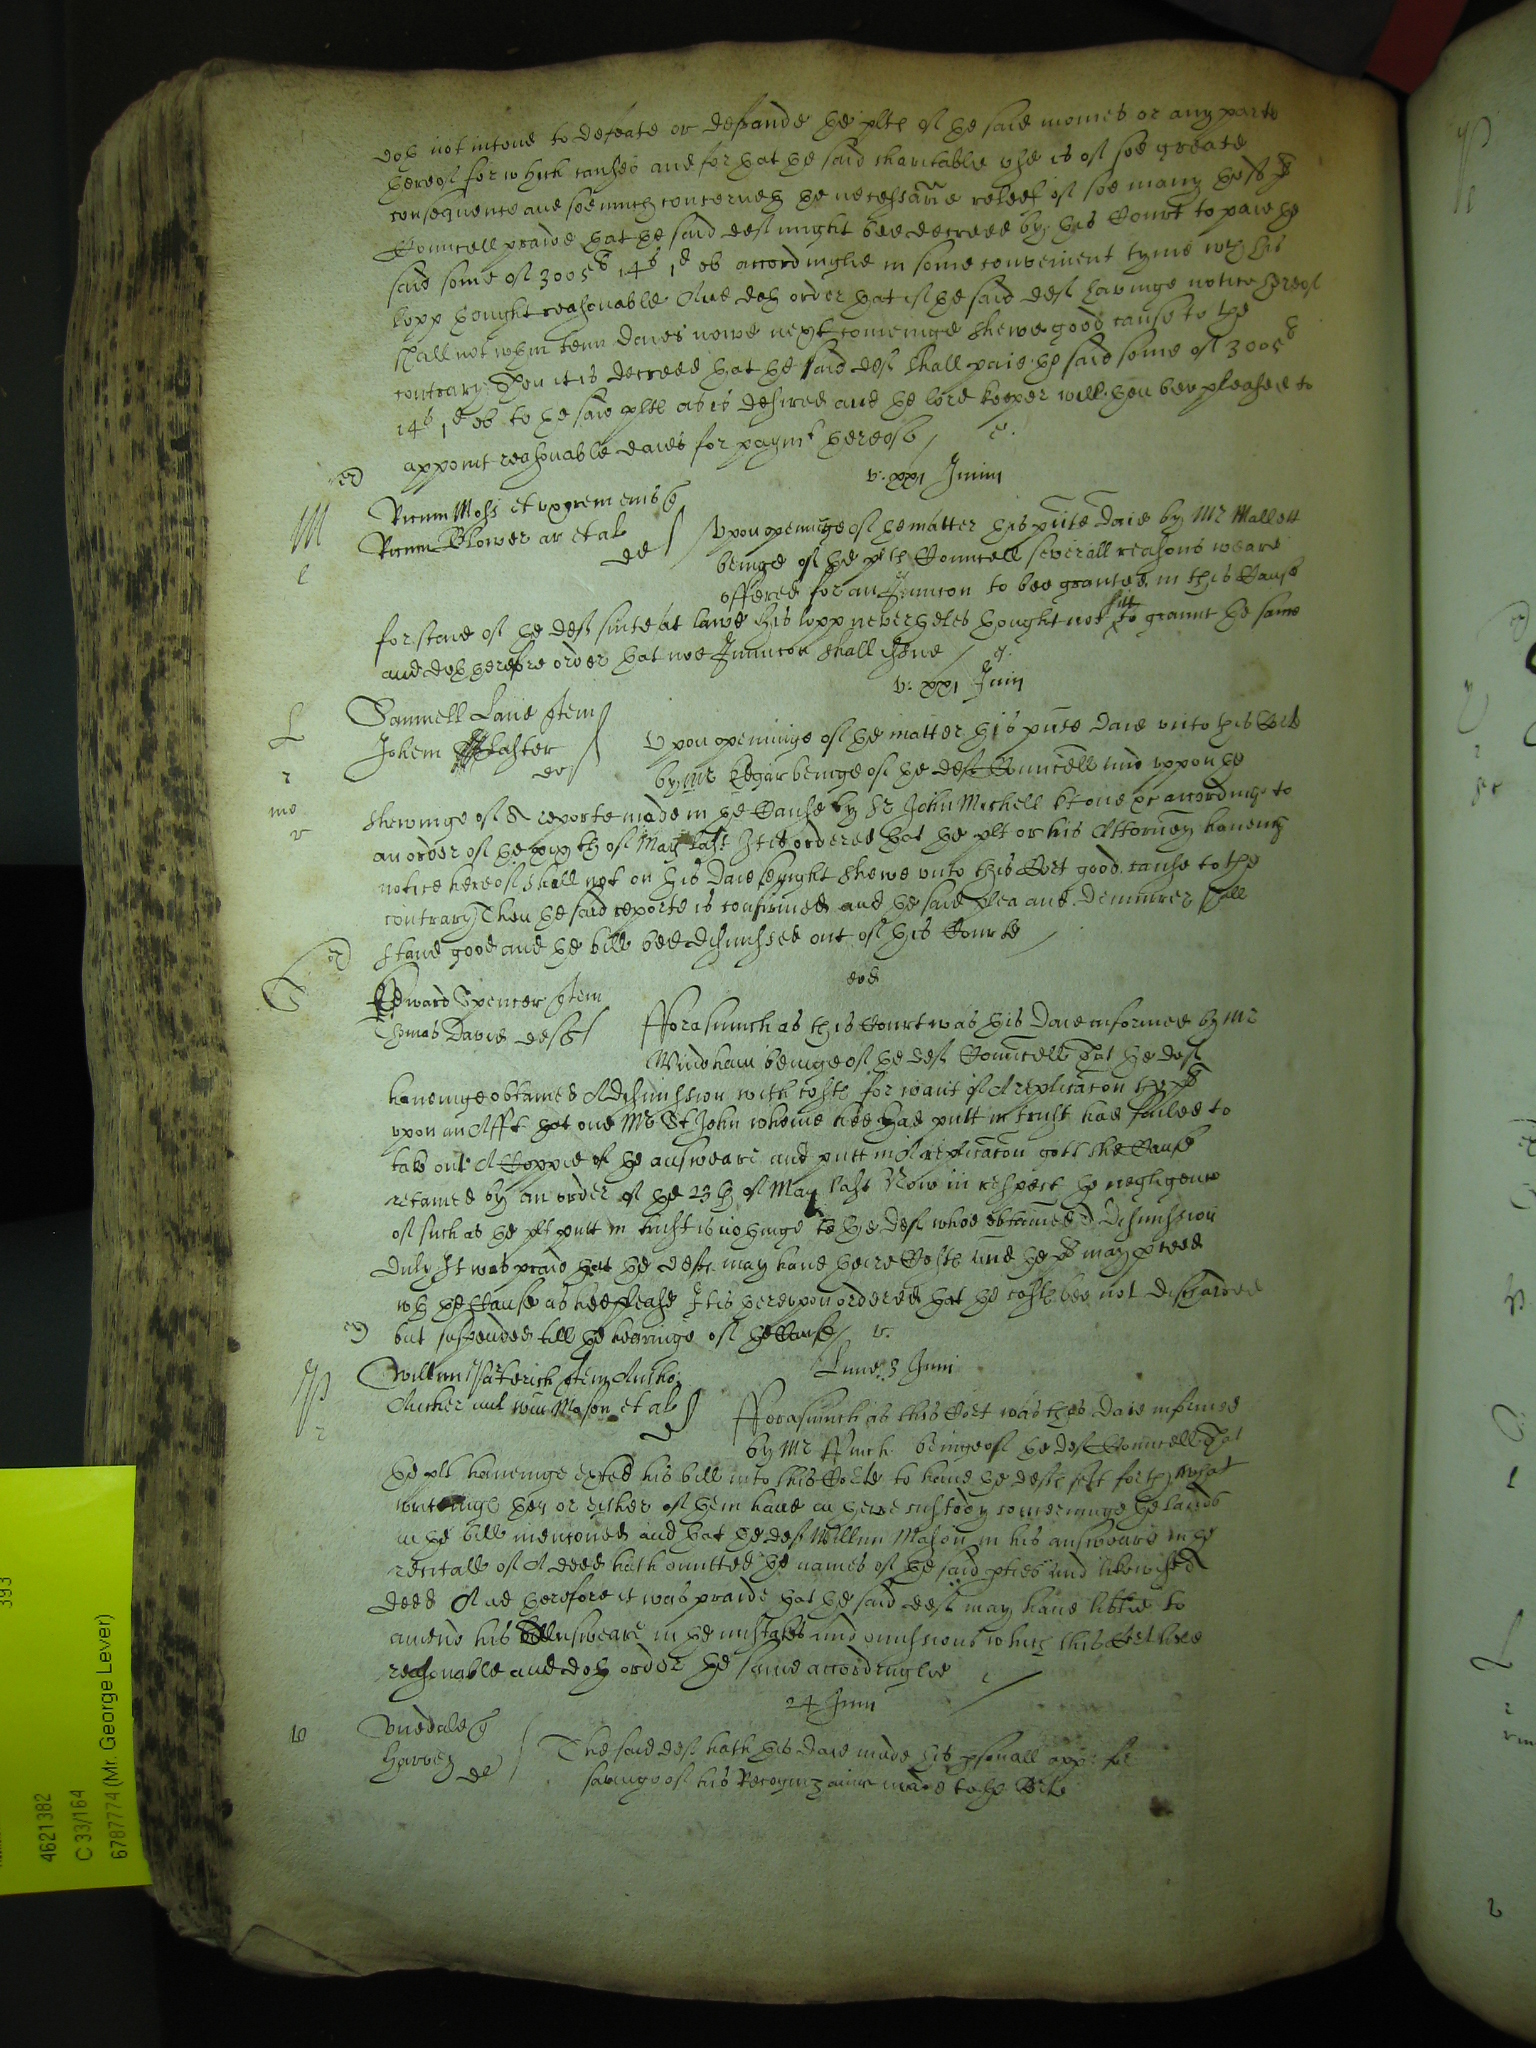 doth not intend to defeate or defraude the pltes of the said monies or any parte
thereof for which causes and for that the said charitable use is of soe greate
consequence and soe much concerneth the necessarie releef of soe many the
Councell praied that the said deft might bee decreed by this Court to paie the
said some of 3005li 14s 1d ob accordinglie in some convenient tyme wch his
lopp thought reasonable And doth order that if the said deft havinge notice hereof
shall not wthin tenn daies nowe next comeinge shewe good cause to the
contrary Then it is decreed that the said deft shall paie the said some of 3005li
14s 1d ob to the said plts as is desired and the lord keeper will then bee pleased to
appoint reasonable daies for paymt thereof
v. xxi Junii
M
Ricum Moss et uxorem eius q
Ricum Blower ar et al de
Upon openinge of the matter this pnte daie by Mr Mallett
beinge of the plts Councell severall reasons weare
offered for an Iniuncon to bee graunted in this Cause
for staie of the deft suite at lawe his lopp neverthelés thought not fitt to graunt the same
and doth therefore order that noe Iniuncon shall issue
v. xxi Junii
L
Samuell Lane quer
Johem Laster def
Upon openinge of the matter this pnte daie unto this Cort
by Mr Edgar beinge of the deft Councell and uppon the
shewinge of A reporte made in the Cause by Sr John Michell kt one &c accordinge to
an order of the xixth of May last It is ordered that the plt or his Attorney haveing
notice hereof shall not on this daie senight shewe unto this Cort good cause to the
contrary Then the said reporte is confirmed and the said plea and demurrer shall
stand good and the bill bee dismissed out of this Courte
eod
Edward Spencer quer
Thomas Davis deft
Fforasmuch as this Court was this daie informed by Mr
Windham beinge of the deft Councell That the deft
haveinge obtained A dismission with costs for want of A replicacon the plt
upon an Afft that one Mr St John whome hee had putt in trust had failed to
take out A Coppie of the answeare and putt in A replicacon gott the Cause
retained by an order of the 23th of May last Now in respect the negligence
of such as the plt putt in trust is nothinge to the deft whoe obtained A dismission
duly It was praid that the defte may have theire Costs and the plt may proceed
wth the Cause as hee please It is thereupon ordered that the costs bee not discharded
but suspended till the hearinge of the Cause
Lune 3 Junii
Willum Paterich quer Antho:
Aucher and Wm Mason et al def
Fforasmuch as this Cort was this daie informed
by Mr Ffinch beinge of the deft Councell That
the plt haveinge exted his bill into this Corte to have the defts sett forth what
writeings they or either of them have in theire custody concerninge the lands
in the bill mentioned and that the deft Willum Mason in his answeare in the
recitall of A deed hath omitted the names of the said pties and likewise A
deed And therefore it was praide that the said deft may have libtie to
amend his answeare in the mistakes and omissions which this Cort held
reasonable and doth order the same accordinglie
24 Junii
Uvedale q
Harvey de
The said deft hath this daie made his psonall app: for
savinge of his Recognizance made to the Cort
393
4621382
C 33/164
6787774 (Mr. George Lever)